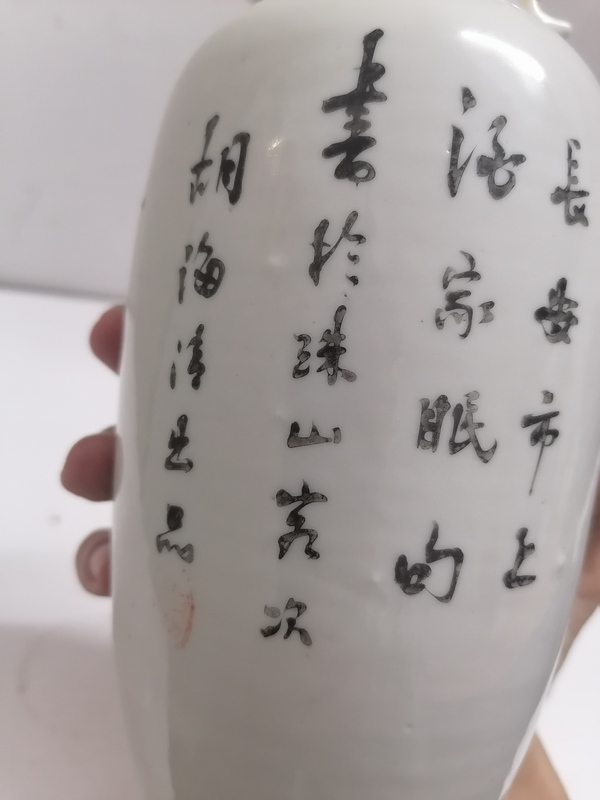 長安市上
酒家眠的
書於珠山客次
胡海清出品